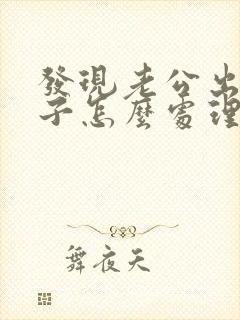 發現老公出
子怎麼處理
舞夜天